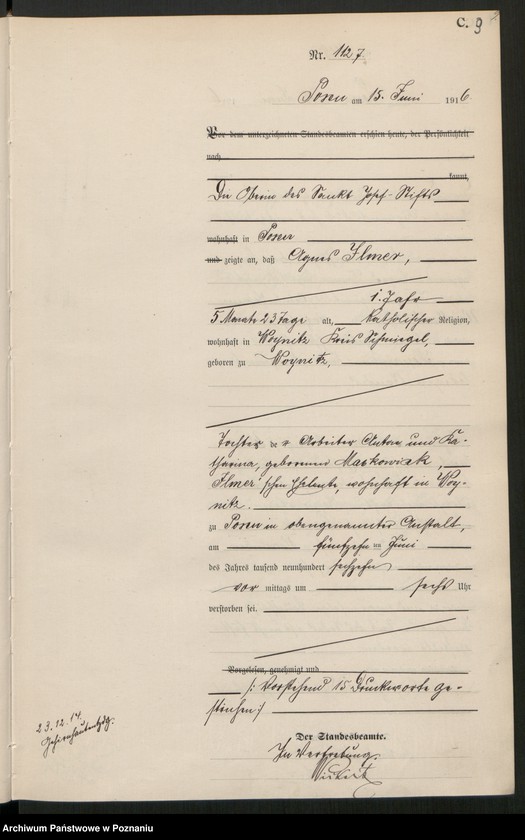 C. 9
Nr. 1127
Posen am 15. Juni 1916
Vor dem unterzeichneten Standesbeamten erschien heute, der Persönlichkeit
nach
kannt,
Die Oberin des Sankt Josef-Stifts
wohnhaft in Posen
und zeigte an, daß Agnes Ilmer,
1 Jahr
5 Monate 23 Tage alt, katholischer Religion,
wohnhaft in Woynitz Kreis Schmiegel,
geboren zu Woynitz,
Tochter der Arbeiter Anton und Ka-
tharina, geborenen Markowiak,
Ilmer'schen Eheleute, wohnhaft in Woy-
nitz.
zu Posen in obengenannter Anstalt,
am fünfzehn ten Juni
des Jahres tausend neunhundert sechzehn
vor mittags um sechs Uhr
verstorben sei.
Vorgelesen, genehmigt und
/: Vorstehend 15 Druckworte ge-
strichen :/
Der Standesbeamte.
In Vertretung.
23.12.14.
Gehirnhautentzdg.
Archiwum Państwowe w Poznaniu